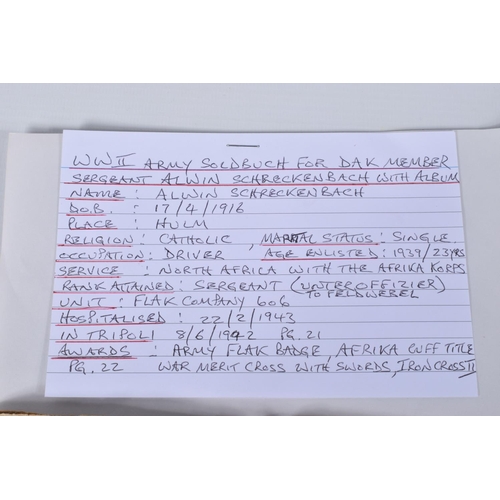 WWII ARMY SOLDBUCH FOR DAK MEMBER
SERGEANT ALWIN SCHRECKENBACH WITH ALBUM
NAME : ALWIN SCHRECKENBACH
D.O.B. : 17/4/1916
PLACE : HULM
RELIGION : CATHOLIC, MARTAL STATUS : SINGLE
OCCUPATION : DRIVER AGE ENLISTED : 1939/23YRS
SERVICE : NORTH AFRICA WITH THE AFRIKA KORPS
RANK ATTAINED : SERGEANT (UNTEROFFIZIER)
TO FELDWEBEL
UNIT : FLAK COMPANY 606
HOSPITALISED : 22/2/1943
IN TRIPOLI 8/6/1942 PG.21
AWARDS : ARMY FLAK BADGE, AFRIKA CUFF TITLE
PG.22 WAR MERIT CROSS WITH SWORDS, IRON CROSS II